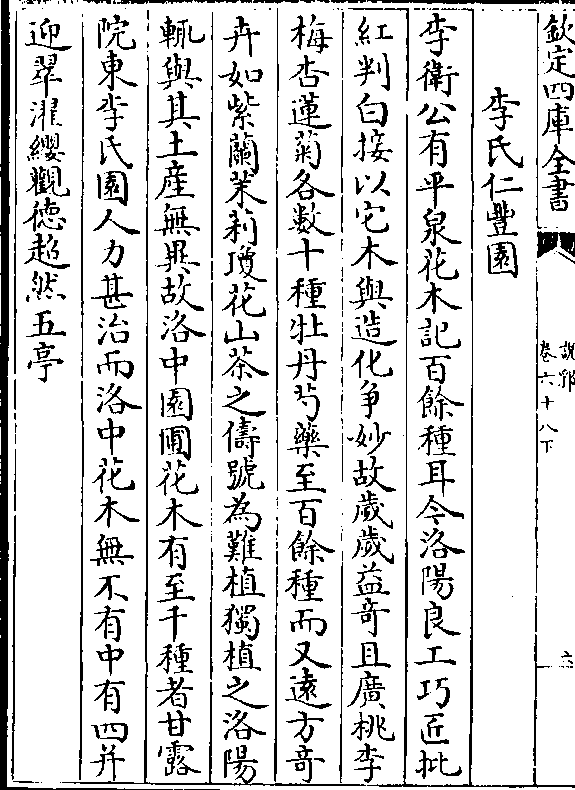 欽定四庫全書
說郛
卷六十八下
六
李氏仁豐園
李衛公有平泉花木記百餘種耳今洛陽良工巧匠批
紅判白接以它木與造化争妙故歲歲益竒且廣桃李
梅杏蓮菊各數十種牡丹芍藥至百餘種而又逺方竒
卉如紫蘭茉莉瓊花山茶之儔號為難植獨植之洛陽
輒與其土產無異故洛中園圃花木有至千種者甘露
院東李氏園人力甚治而洛中花木無不有中有四并
迎翠濯纓觀徳超然五亭